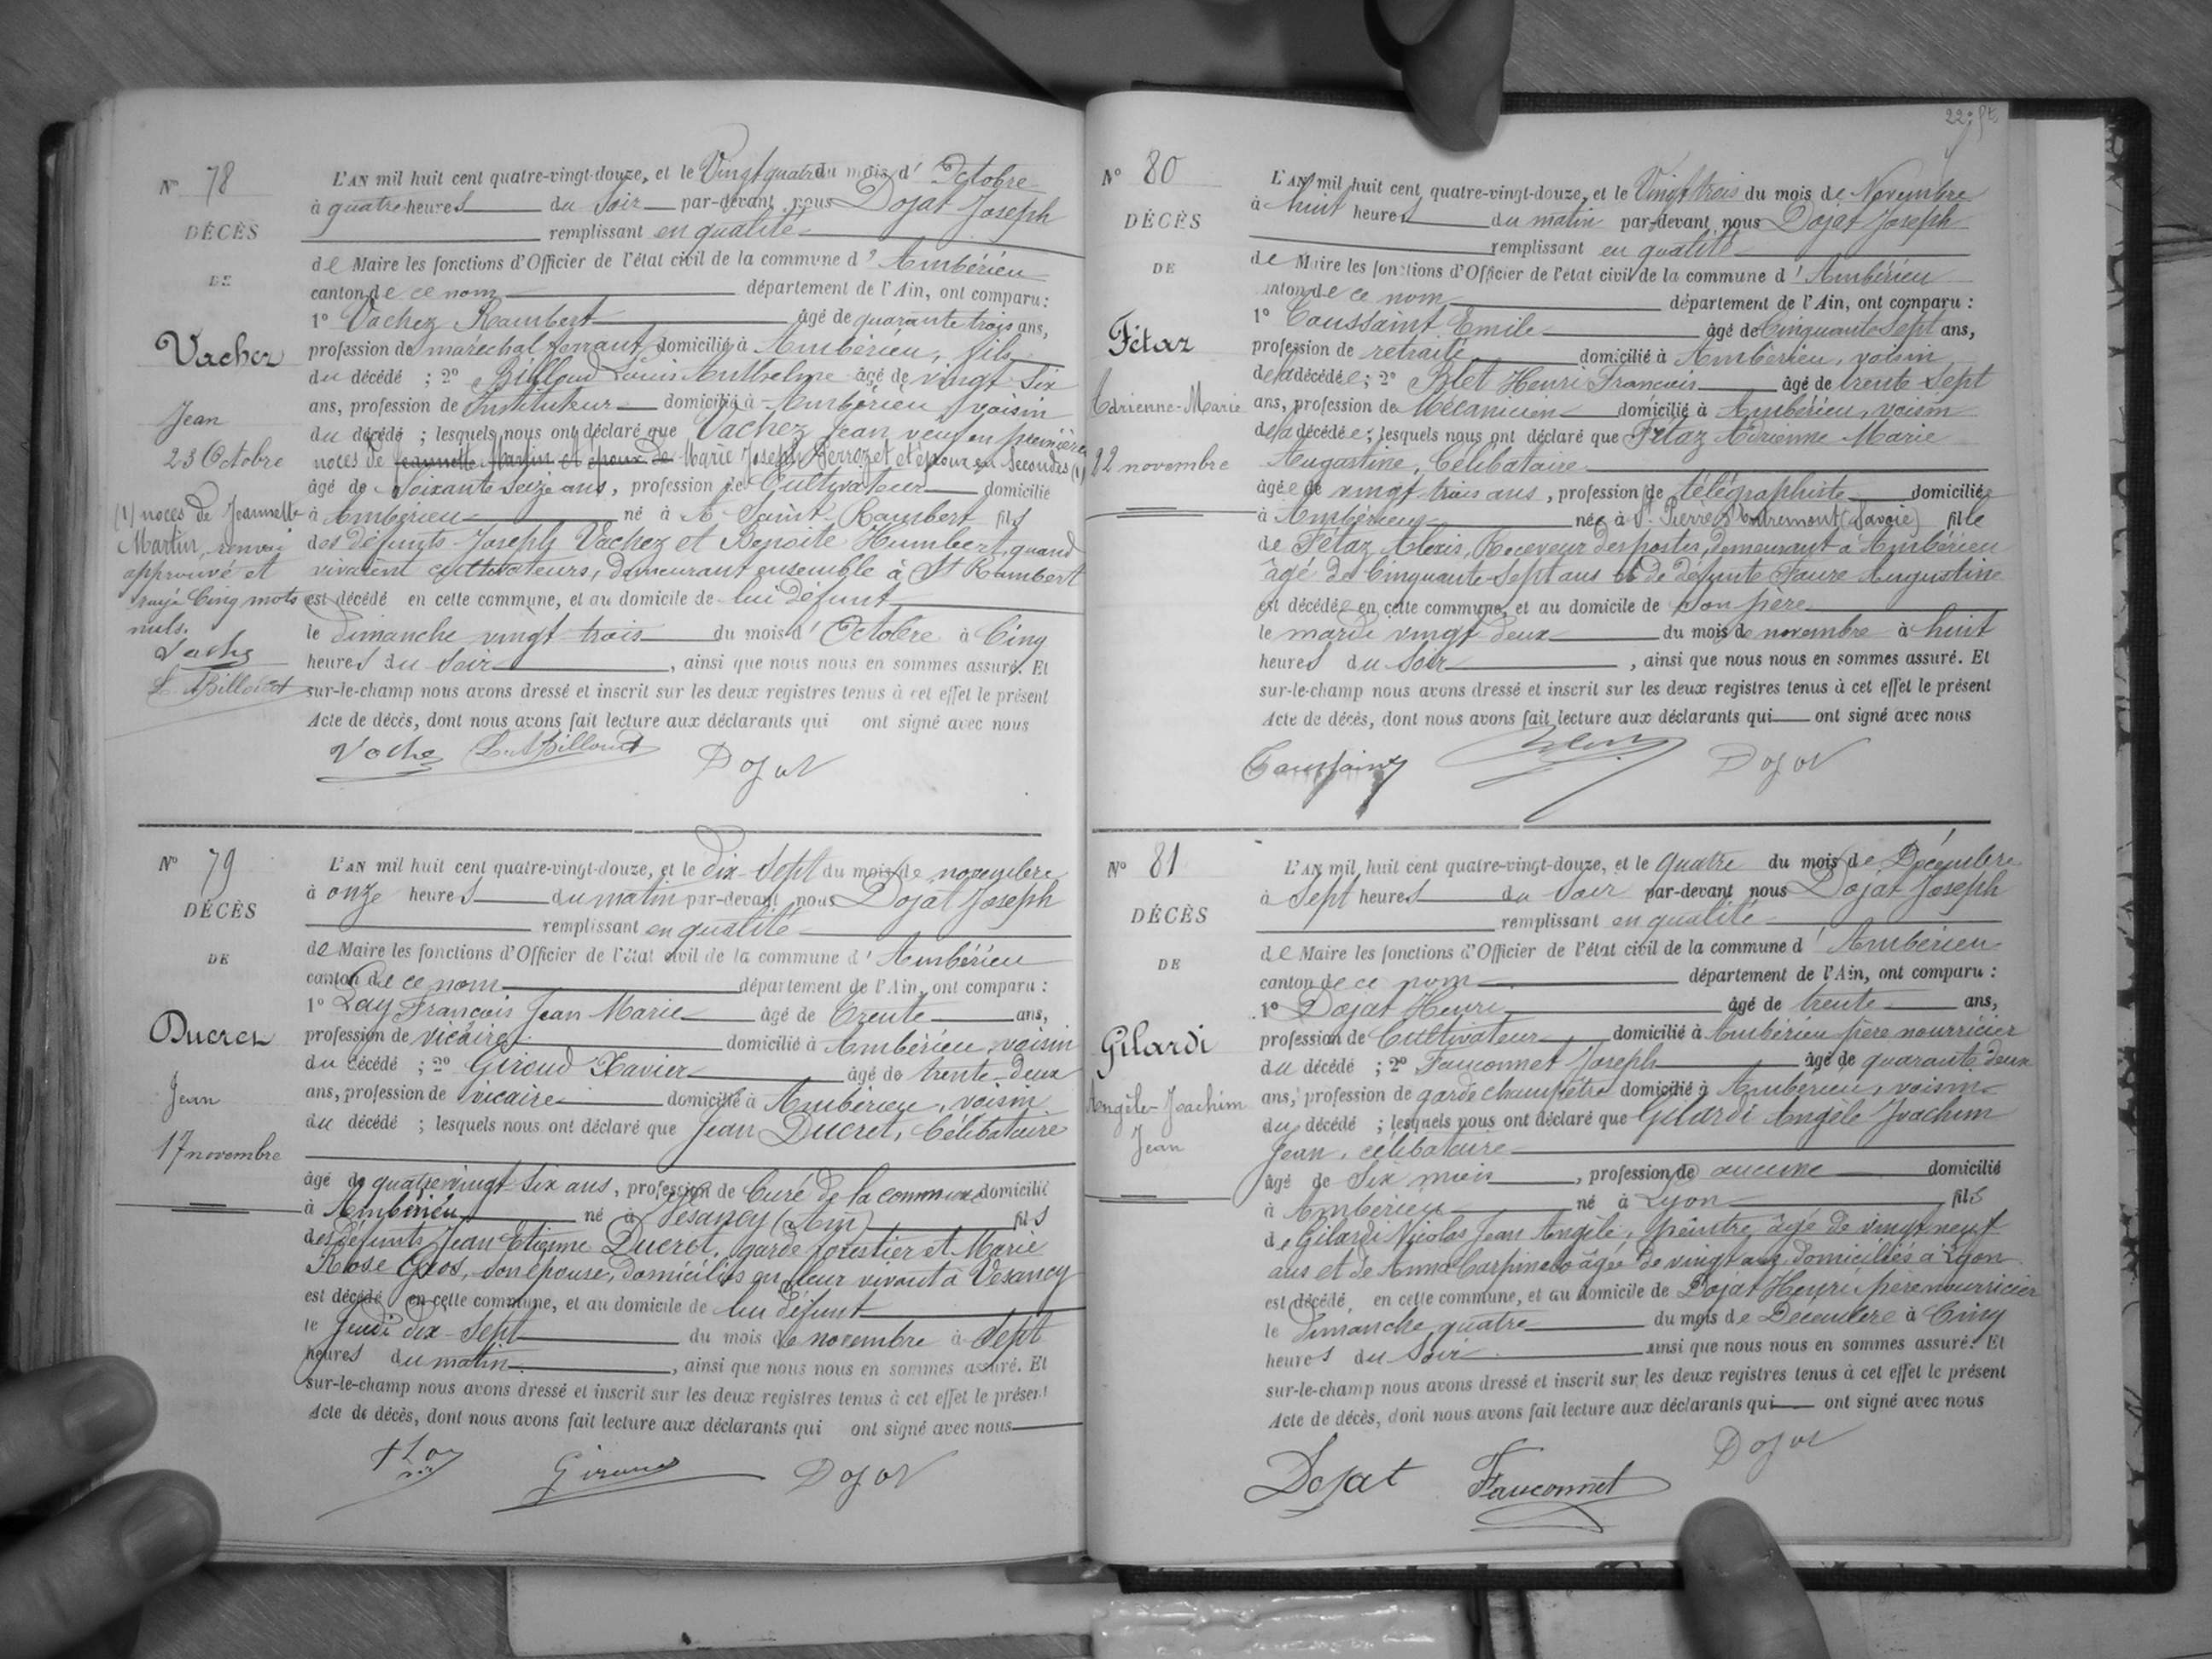 N° 78
DÉCÈS
DE
Vacher
Jean
23 Octobre
(1) noces de Jeannette
Martin, renvoi
approuvé et
rayé Cinq mots
nuls.
Vache
L. Billoud
L'AN mil huit cent quatre-vingt-douze, et le Vingt quatre du mois d' Octobre
à quatre heures du Soir par-devant nous Dojat Joseph
remplissant en qualité
de Maire les fonctions d'Officier de l'état civil de la commune d' Ambérieu
canton de ce nom département de l'Ain, ont comparu :
1° Vachez Rambert âgé de quarante trois ans,
profession de maréchal ferrant domicilié à Ambérieu, fils
du décédé ; 2° Billoud Louis Anthelme âgé de vingt Six
ans, profession de Instituteur domicilié à Ambérieu voisin
du décédé ; lesquels nous ont déclaré que Vachez Jean veuf en premières
noces de Jeannette Martin et époux de Marie Joseph Perrozet et époux en Secondes (1)
âgé de Soixante Seize ans, profession de Cultivateur domicilié
à Ambérieu né à Saint-Rambert fils
des défunts Joseph Vachez et Benoite Humbert, quand
vivaient cultivateurs, demeurant ensemble à St Rambert
est décédé en cette commune, et au domicile de lui défunt
le dimanche vingt trois du mois d' Octobre à Cinq
heures du Soir, ainsi que nous nous en sommes assuré. Et
sur-le-champ nous avons dressé et inscrit sur les deux registres tenus à cet effet le présent
Acte de décès, dont nous avons fait lecture aux déclarants qui ont signé avec nous
Vache L. Billoud Dojat
N° 79
DÉCÈS
DE
Ducret
Jean
17 novembre
L'AN mil huit cent quatre-vingt-douze, et le dix-Sept du mois de novembre
à onze heures du matin par-devant nous Dojat Joseph
remplissant en qualité
de Maire les fonctions d'Officier de l'état civil de la commune d' Ambérieu
canton de ce nom département de l'Ain, ont comparu :
1° Lay François Jean Marie âgé de Trente ans,
profession de vicaire domicilié à Ambérieu voisin
du décédé ; 2° Giroud Xavier âgé de trente-deux
ans, profession de vicaire domicilié à Ambérieu, voisin
du décédé ; lesquels nous ont déclaré que Jean Ducret, Célibataire
âgé de quatre vingt Six ans, profession de Curé de la commune domicilié
à Ambérieu né à Vesancy (Ain) fils
des défunts Jean Etienne Ducret, garde forestier et Marie
Rose Gros, son épouse, domiciliés en leur vivant à Vesancy
est décédé en cette commune, et au domicile de lui défunt
le Jeudi dix-Sept du mois de novembre à Sept
heures du matin, ainsi que nous nous en sommes assuré. Et
sur-le-champ nous avons dressé et inscrit sur les deux registres tenus à cet effet le présent
Acte de décès, dont nous avons fait lecture aux déclarants qui ont signé avec nous
Giroud Dojat
N° 80
DÉCÈS
DE
Fétaz
Adrienne-Marie
22 novembre
L'AN mil huit cent quatre-vingt-douze, et le Vingt trois du mois de Novembre
à huit heures du matin par-devant nous Dojat Joseph
remplissant en qualité
de Maire les fonctions d'Officier de l'état civil de la commune d' Ambérieu
canton de ce nom département de l'Ain, ont comparu :
1° Toussaint Emile âgé de Cinquante Sept ans,
profession de retraité domicilié à Ambérieu, voisin
de la décédée ; 2° Blet Henri François âgé de trente-Sept
ans, profession de Mécanicien domicilié à Ambérieu, voisin
de la décédée ; lesquels nous ont déclaré que Fétaz Adrienne Marie
Augustine, Célibataire
âgée de vingt trois ans, profession de télégraphiste domiciliée
à Ambérieu née à St Pierre d'Entremont (Savoie) fille
de Fétaz Alexis, Receveur des postes, demeurant à Ambérieu
âgé de Cinquante-Sept ans et de défunte Faure Augustine
est décédée en cette commune, et au domicile de Son père
le mardi vingt deux du mois de novembre à huit
heures du Soir, ainsi que nous nous en sommes assuré. Et
sur-le-champ nous avons dressé et inscrit sur les deux registres tenus à cet effet le présent
Acte de décès, dont nous avons fait lecture aux déclarants qui ont signé avec nous
Toussaint Dojat
N° 81
DÉCÈS
DE
Gilardi
Angèle-Joachim
Jean
L'AN mil huit cent quatre-vingt-douze, et le quatre du mois de Décembre
à Sept heures du Soir par-devant nous Dojat Joseph
remplissant en qualité
de Maire les fonctions d'Officier de l'état civil de la commune d' Ambérieu
canton de ce nom département de l'Ain, ont comparu :
1° Dojat Henri âgé de trente ans,
profession de Cultivateur domicilié à Ambérieu père nourricier
du décédé ; 2° Fauconnet Joseph âgé de quarante deux
ans, profession de garde champêtre domicilié à Ambérieu, voisin
du décédé ; lesquels nous ont déclaré que Gilardi Angèle Joachim
Jean, célibataire
âgé de Six mois, profession de aucune domicilié
à Ambérieu né à Lyon fils
de Gilardi Nicolas Jean Angèle, peintre âgé de vingt neuf
ans et de Anna Carpinelo âgée de vingt ans, domiciliés à Lyon
est décédé en cette commune, et au domicile de Dojat Henri père nourricier
le Dimanche quatre du mois de Décembre à Cinq
heures du Soir ainsi que nous nous en sommes assuré. Et
sur-le-champ nous avons dressé et inscrit sur les deux registres tenus à cet effet le présent
Acte de décès, dont nous avons fait lecture aux déclarants qui ont signé avec nous
Dojat Fauconnet Dojat